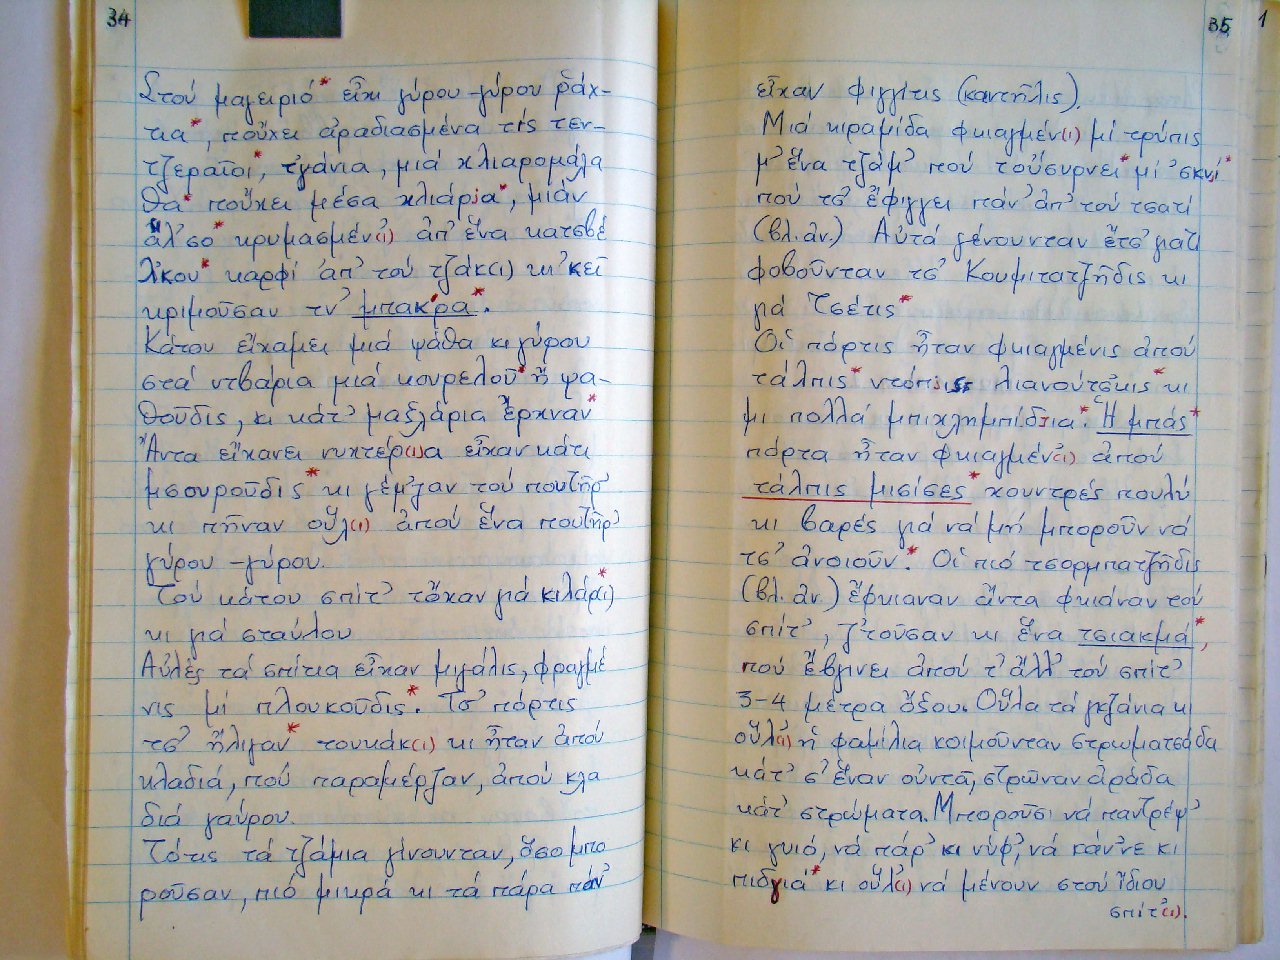 34
Στού μαγειριό* εἶχι γύρου-γύρου ῥάχ-
τια*, ποὖχει ἀραδιασμένα τίς τεν-
τζεραῖοι*, τγάνια, μιά χλιαρομάλα
θα* ποὖχει μέσα χλιάρια*, μιάν
ἅλ'σο* κρυμασμέν(ι) ἀπ' ἕνα κατσβέ
λ'κου* καρφί ἀπ' τού τζάκ(ι) κι' κεῖ
κριμοῦσαν τν' μπακ'ρα*.
Κάτου εἴχαμει μιά ψάθα κι γύρου
στά ντβάρια μιά κουρελοῦ* ἤ ψα-
θοῦδις, κι κάτ' μαξλάρια ἔρχναν*
Ἄντα εἴχανει νυχτέρ(ι)α εἶχαν κάτι
μσουροῦδις* κι γέμ'ζαν τού πουτῆρ'
κι πῆναν οὗλ(ι) ἀπού ἕνα πουτῆρ'
γύρου-γύρου.
Τού κάτου σπίτ' τὄχαν γιά κιλάρ(ι)*
κι γιά σταύλου
Αὐλές τά σπίτια εἶχαν μιγάλις, φραγμέ
νις μί πλουκοῦδις*. Τσ' πόρτις
τσ' ἤλιγαν* τουκάκ(ι) κι ἦταν ἀπού
κλαδιά, πού παραμέρζαν, ἀπού κλα
διά γαύρου.
Τότις τά τζάμια γίνουνταν, ὅσο μπο
ροῦσαν, πιό μικρά κι τά πάρα πάν'
35
1
εἶχαν φιγγίτις (καντῆλις).
Μιά κιραμίδα φκιαγμέν(ι) μί τρύπις
μ' ἕνα τζάμ' πού τοὔσυρνει* μί 'σκνί*
πού τσ' ἔφιγγει πάν' ἀπ' τού τσατί
(βλ. ἀν.) Αὐτά γένουνταν ἔτσ' γιατί
φοβοῦνταν τσ' Κουμιτατζῆδις κι
γιά Τσέτις*
Οἱ πόρτις ἦταν φκιαγμένις ἀπού
τάλπις* ντόπισς λιανούτσκις* κι
μι πολλά μπιχλημπίδια*. Ἡ μπάς*
πόρτα ἦταν φκιαγμέν(ι) ἀπού
τάλπις μισίσες* χουντρές πουλύ
κι βαρές γιά νά μή μποροῦν νά
τσ' ἀνοιοῦν*. Οἱ πιό τσορμπατζῆδις
(βλ. ἀν.) ἔφκιαναν ἄντα φκιάναν τού
σπίτ', ζ'τοῦσαν κι ἕνα τσιακμά*,
πού ἔβγινει ἀπού τ' ἄλλ' τού σπίτ'
3-4 μέτρα ὄξου. Οὗλα τά γκζάνια κι
οὗλ(ι) ἡ φαμίλια κοιμοῦνταν στρωματσάδα
κάτ' σ' ἕναν ουντᾶ, στρῶναν ἀράδα
κάτ' στρώματα. Μποροῦσι νά παντρέψ'
κι γυιό, νά πάρ' κι νύφ', νά κάν'νε κι
πιδγιά* κι οὗλ(ι) νά μένουν στού ἴδιου
σπίτ(ι).